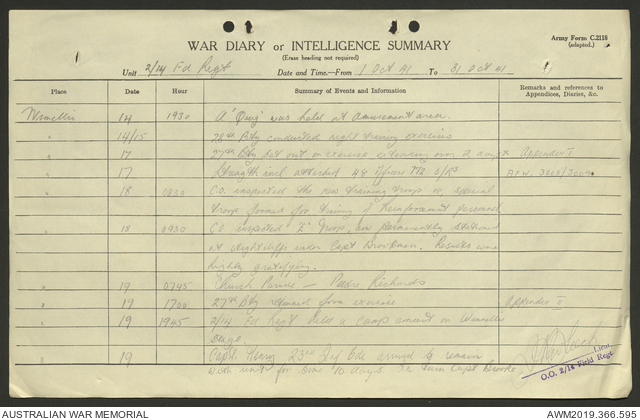 Army Form C.2118
(adapted.)
WAR DIARY or INTELLIGENCE SUMMARY
(Erase heading not required)
Unit 2/14 Fd Regt Date and Time.—From 1 Oct 41 To 31 Oct 41
Place Date Hour Summary of Events and Information Remarks and references to Appendices, Diaries, &c.
Winnellie 14 1930 A was held at Amusement area.
" 14/15 28th Bty conducted night training exercises
" 17 27th Bty set out on exercise extending over 2 days Appendix I
" 17 Strength incl attached 48 Officers 772 O/Rs A.F.W. 3008/3009
" 18 0830 C.O. inspected the new training troop or special
troop formed for training of Reinforcement personnel
" 18 0930 CO inspected "E" Troop, permanently stationed
at Nightcliff under Capt Brookman. Results were
highly gratifying.
" 19 0745 Church Parade — Padre Richards
" 19 1700 27th Bty returned from exercise Appendix II
" 19 1945 2/14 Fd Regt held a camp concert on Winnellie
stage.
" 19 Capt. Henry 23rd Inf Bde arrived to remain
with unit for some 10 days. In turn Capt Brooke
Lieut.
O.O. 2/14 Field Regt
AUSTRALIAN WAR MEMORIAL
AWM2019.366.595